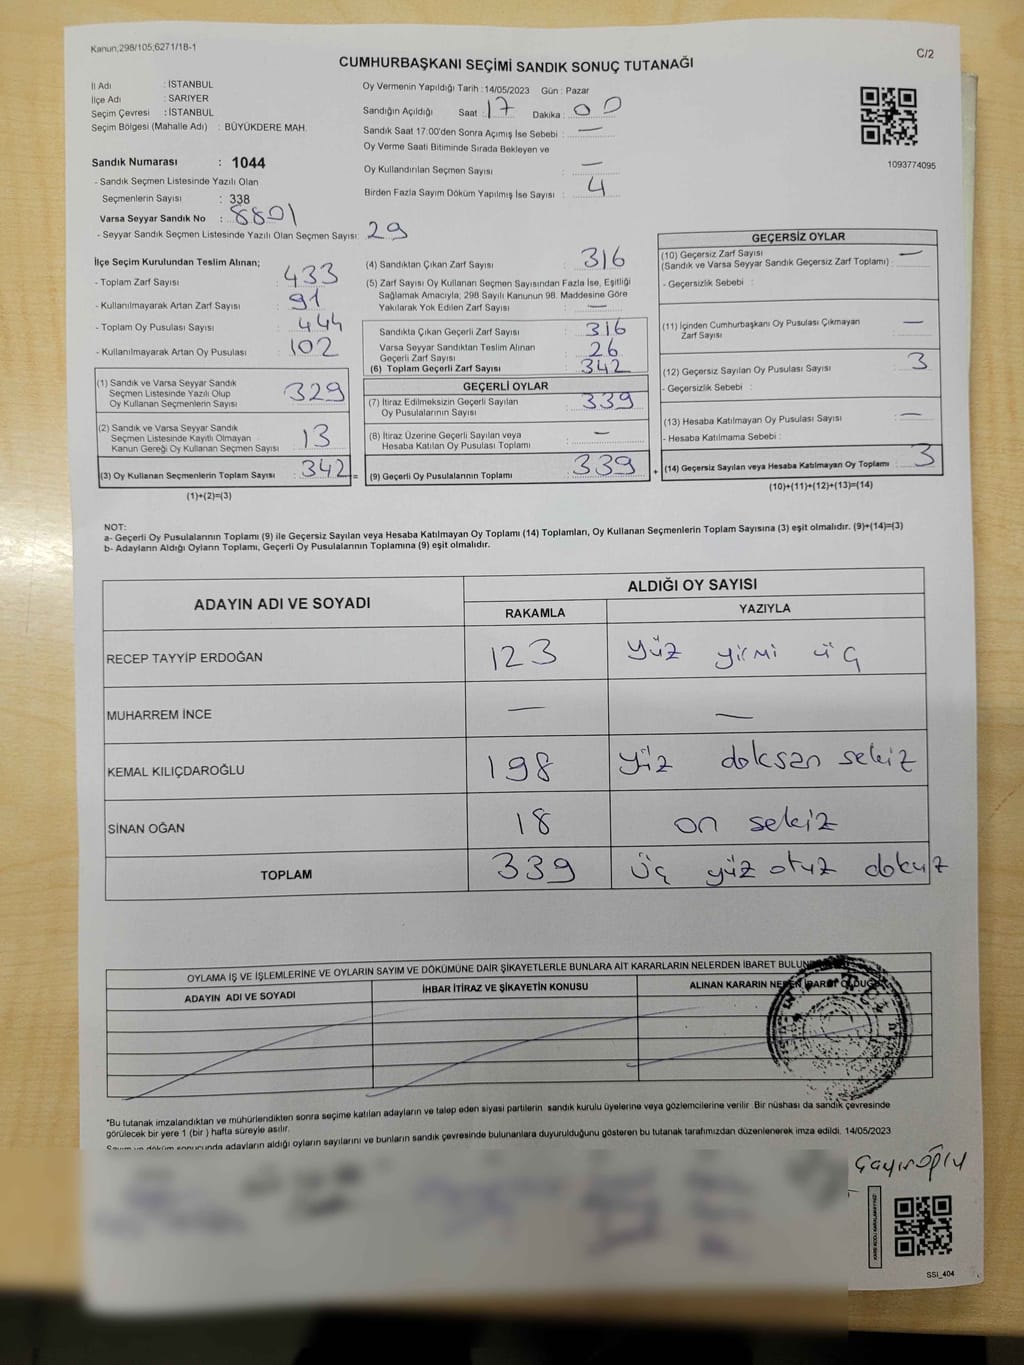 Kanun,298/105;6271/18-1
C/2
CUMHURBAŞKANI SEÇİMİ SANDIK SONUÇ TUTANAĞI
İl Adı : İSTANBUL
İlçe Adı : SARIYER
Seçim Çevresi : İSTANBUL
Seçim Bölgesi (Mahalle Adı) : BÜYÜKDERE MAH.
Oy Vermenin Yapıldığı Tarih : 14/05/2023 Gün : Pazar
Sandığın Açıldığı Saat : 17 Dakika : 00
Sandık Saat 17.00'den Sonra Açımış İse Sebebi : —
Oy Verme Saati Bitiminde Sırada Bekleyen ve
Oy Kullandırılan Seçmen Sayısı : —
Birden Fazla Sayım Döküm Yapılmış İse Sayısı : 4
1093774095
Sandık Numarası : 1044
- Sandık Seçmen Listesinde Yazılı Olan
Seçmenlerin Sayısı : 338
Varsa Seyyar Sandık No : 8801
- Seyyar Sandık Seçmen Listesinde Yazılı Olan Seçmen Sayısı: 29
İlçe Seçim Kurulundan Teslim Alınan;
- Toplam Zarf Sayısı : 433
- Kullanılmayarak Artan Zarf Sayısı : 91
- Toplam Oy Pusulası Sayısı : 444
- Kullanılmayarak Artan Oy Pusulası : 102
(1) Sandık ve Varsa Seyyar Sandık
Seçmen Listesinde Yazılı Olup
Oy Kullanan Seçmenlerin Sayısı : 329
(2) Sandık ve Varsa Seyyar Sandık
Seçmen Listesinde Kayıtlı Olmayan
Kanun Gereği Oy Kullanan Seçmen Sayısı : 13
(3) Oy Kullanan Seçmenlerin Toplam Sayısı : 342 =
(1)+(2)=(3)
(4) Sandıktan Çıkan Zarf Sayısı : 316
(5) Zarf Sayısı Oy Kullanan Seçmen Sayısından Fazla İse, Eşitliği
Sağlamak Amacıyla, 298 Sayılı Kanunun 98. Maddesine Göre
Yakılarak Yok Edilen Zarf Sayısı : —
Sandıkta Çıkan Geçerli Zarf Sayısı : 316
Varsa Seyyar Sandıktan Teslim Alınan
Geçerli Zarf Sayısı : 26
(6) Toplam Geçerli Zarf Sayısı : 342
GEÇERLİ OYLAR
(7) İtiraz Edilmeksizin Geçerli Sayılan
Oy Pusulalarının Sayısı : 339
(8) İtiraz Üzerine Geçerli Sayılan veya
Hesaba Katılan Oy Pusulası Toplamı : —
(9) Geçerli Oy Pusulalarının Toplamı : 339 +
GEÇERSİZ OYLAR
(10) Geçersiz Zarf Sayısı
(Sandık ve Varsa Seyyar Sandık Geçersiz Zarf Toplamı) : —
- Geçersizlik Sebebi :
(11) İçinden Cumhurbaşkanı Oy Pusulası Çıkmayan
Zarf Sayısı : —
(12) Geçersiz Sayılan Oy Pusulası Sayısı : 3
- Geçersizlik Sebebi :
(13) Hesaba Katılmayan Oy Pusulası Sayısı : —
- Hesaba Katılmama Sebebi :
(14) Geçersiz Sayılan veya Hesaba Katılmayan Oy Toplamı : 3
(10)+(11)+(12)+(13)=(14)
NOT:
a- Geçerli Oy Pusulalarının Toplamı (9) ile Geçersiz Sayılan veya Hesaba Katılmayan Oy Toplamı (14) Toplamları, Oy Kullanan Seçmenlerin Toplam Sayısına (3) eşit olmalıdır. (9)+(14)=(3)
b- Adayların Aldığı Oyların Toplamı, Geçerli Oy Pusulalarının Toplamına (9) eşit olmalıdır.
ADAYIN ADI VE SOYADI ALDIĞI OY SAYISI
RAKAMLA YAZIYLA
RECEP TAYYİP ERDOĞAN 123 yüz yirmi üç
MUHARREM İNCE — —
KEMAL KILIÇDAROĞLU 198 yüz doksan sekiz
SİNAN OĞAN 18 on sekiz
TOPLAM 339 üç yüz otuz dokuz
OYLAMA İŞ VE İŞLEMLERİNE VE OYLARIN SAYIM VE DÖKÜMÜNE DAİR ŞİKAYETLERLE BUNLARA AİT KARARLARIN NELERDEN İBARET BULUN
ADAYIN ADI VE SOYADI İHBAR İTİRAZ VE ŞİKAYETİN KONUSU ALINAN KARARIN NEDEN İBARET OLDUĞU
*Bu tutanak imzalandıktan ve mühürlendikten sonra seçime katılan adayların ve talep eden siyasi partilerin sandık kurulu üyelerine veya gözlemcilerine verilir. Bir nüshası da sandık çevresinde
görülecek bir yere 1 (bir ) hafta süreyle asılır.
Sayım ve döküm sonucunda adayların aldığı oyların sayılarını ve bunların sandık çevresinde bulunanlara duyurulduğunu gösteren bu tutanak tarafımızdan düzenlenerek imza edildi. 14/05/2023
SSI_404